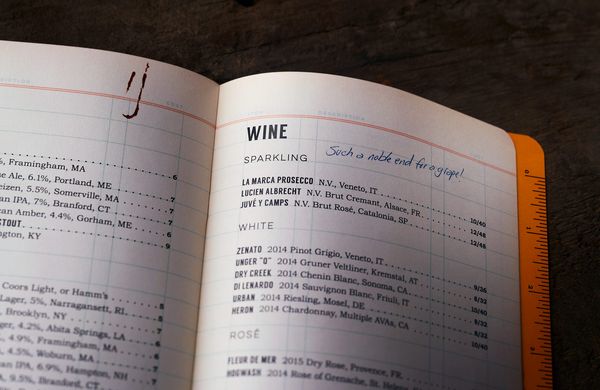 %, Framingham, MA 6
e Ale, 6.1%, Portland, ME 7
eizen, 5.5%, Somerville, MA 7
an IPA, 7%, Branford, CT 7
can Amber, 4.4%, Gorham, ME 6
STOUT 9
ngton, KY
Coors Light, or Hamm's 5
Lager, 5%, Narragansett, RI 5
Brooklyn, NY
er, 4.2%, Abita Springs, LA
4.9%, Framingham, MA
4.5%, Woburn, MA
on IPA, 6.9%, Hampton, NH
A, 9.5%, Branford, CT
DESCRIPTION
WINE
SPARKLING
Such a noble end for a grape!
LA MARCA PROSECCO N.V., Veneto, IT 10/40
LUCIEN ALBRECHT N.V. Brut Cremant, Alsace, FR 12/48
JUVÉ Y CAMPS N.V. Brut Rosé, Catalonia, SP 12/48
WHITE
ZENATO 2014 Pinot Grigio, Veneto, IT 9/36
UNGER "Q" 2014 Gruner Veltliner, Kremstal, AT 8/32
DRY CREEK 2014 Chenin Blanc, Sonoma, CA 8/32
DI LENARDO 2014 Sauvignon Blanc, Friuli, IT 10/40
URBAN 2014 Riesling, Mosel, DE 8/32
HERON 2014 Chardonnay, Multiple AVAs, CA 10/40
ROSÉ
FLEUR DE MER 2015 Dry Rose, Provence, FR
HOGWASH 2014 Rose of Grenache, St. Helena